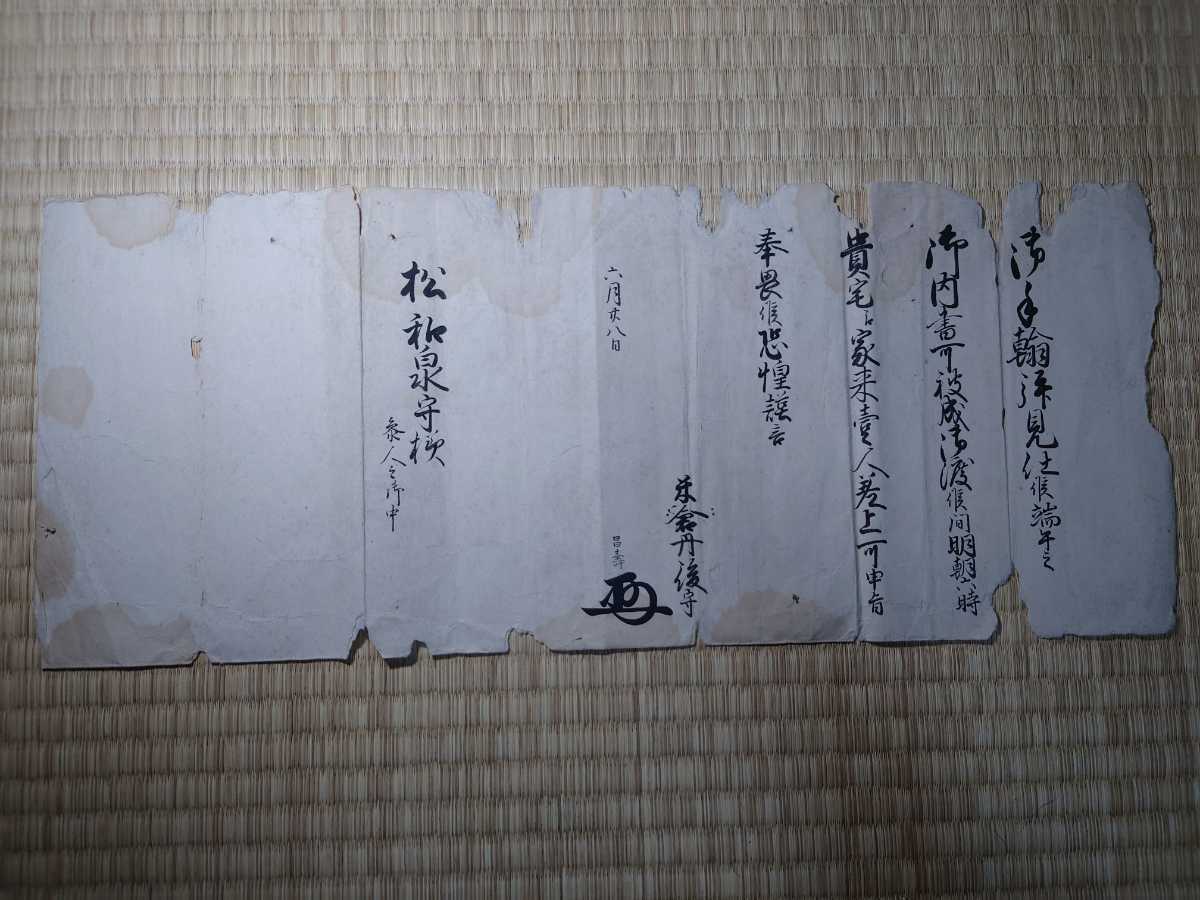 御手翰拝見仕候端午之
御内書可被成御渡候間明朝六時
貴宅江家来壹人差上可申旨
奉畏候恐惶謹言
朽倉丹後守
六月廿八日
昌壽
松和泉守様
参人々御中